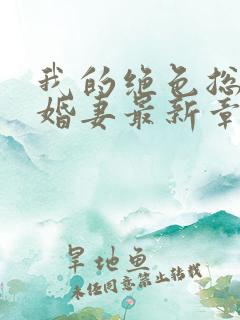 我的绝色总
婚妻最新章
旱地鱼
未经同意禁止转载